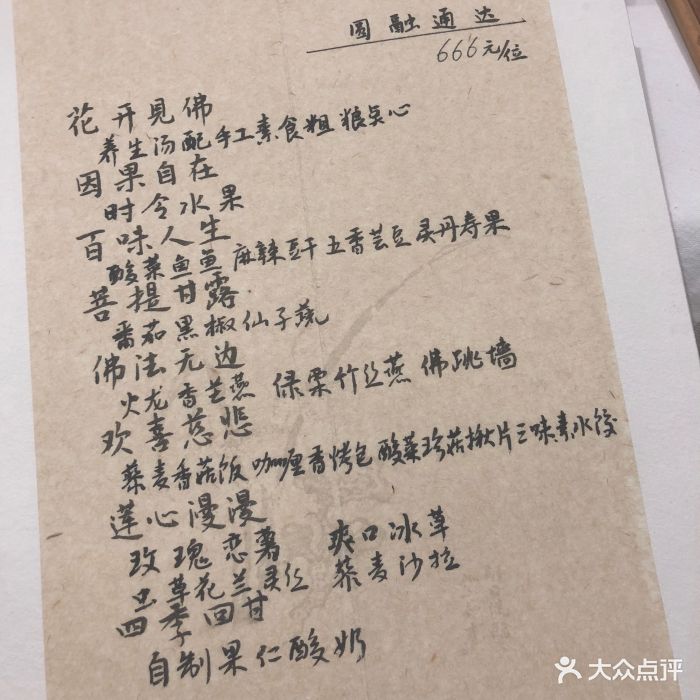 圆融通达
666元/位
花开見佛
养生汤配手工素食粗粮点心
因果自在
时令水果
百味人生
酸菜鱼鱼 麻辣豆干 五香芸豆 灵丹寿果
菩提甘露
番茄黑椒仙子菀
佛法无边
火龙香芒燕 绿栗竹丝燕 佛跳墙
欢喜慈悲
藜麦香菇饭 咖喱香烤包 酸菜珍菇揪片 三味素水饺
莲心漫漫
玫瑰恋薯 爽口冰草
虫草花兰灵丝 藜麦沙拉
四季回甘
自制果仁酸奶
大众点评